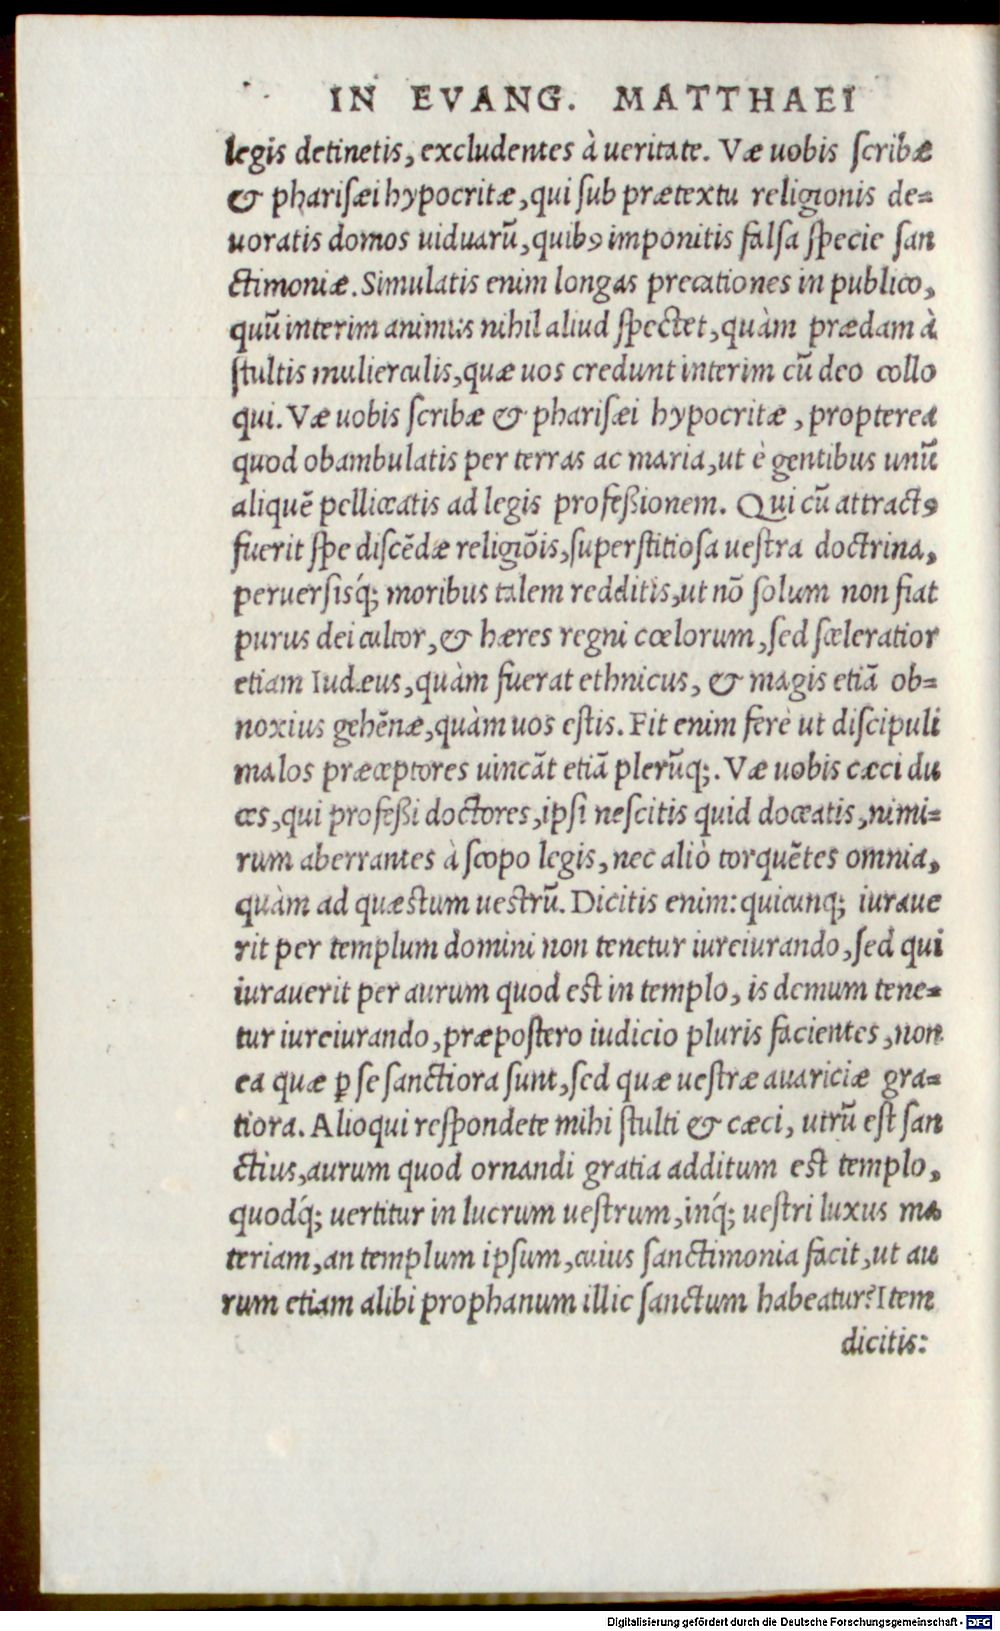 IN EVANG. MATTHAEI
legis detinetis, excludentes à ueritate. Væ uobis ſcribæ
& phariſæi hypocritæ, qui ſub prætextu religionis de-
uoratis domos uiduarũ, quibꝰ imponitis falſa ſpecie ſan
ctimoniæ. Simulatis enim longas precationes in publico,
quũ interim animus nihil aliud ſpectet, quàm prædam à
ſtultis mulierculis, quæ uos credunt interim cũ deo collo
qui. Væ uobis ſcribæ & phariſæi hypocritæ, propterea
quod obambulatis per terras ac maria, ut è gentibus unũ
aliquẽ pelliceatis ad legis profeßionem. Qui cũ attractꝰ
fuerit ſpe diſcẽdæ religiõis, ſuperſtitioſa ueſtra doctrina,
peruerſisq́; moribus talem redditis, ut nõ ſolum non fiat
purus dei cultor, & hæres regni cœlorum, ſed ſceleratior
etiam Iudæus, quàm fuerat ethnicus, & magis etiã ob-
noxius gehẽnæ, quàm uos eſtis. Fit enim ferè ut diſcipuli
malos præceptores uincãt etiã plerũq;. Væ uobis cæci du
ces, qui profeßi doctores, ipſi neſcitis quid doceatis, nimi-
rum aberrantes à ſcopo legis, nec aliò torquẽtes omnia,
quàm ad quæstum uestrũ. Dicitis enim: quicunq; iuraue
rit per templum domini non tenetur iureiurando, ſed qui
iurauerit per aurum quod est in templo, is demum tene-
tur iureiurando, præpoſtero iudicio pluris facientes, non
ea quæ ꝑ ſe ſanctiora ſunt, ſed quæ ueſtræ auariciæ gra-
tiora. Alioqui reſpondete mihi ſtulti & cæci, utrũ eſt ſan
ctius, aurum quod ornandi gratia additum est templo,
quodq́; uertitur in lucrum ueſtrum, inq́; ueſtri luxus ma
teriam, an templum ipſum, cuius ſanctimonia facit, ut au
rum etiam alibi prophanum illic ſanctum habeatur? Item
dicitis:
Digitalisierung gefördert durch die Deutsche Forschungsgemeinschaft - DFG